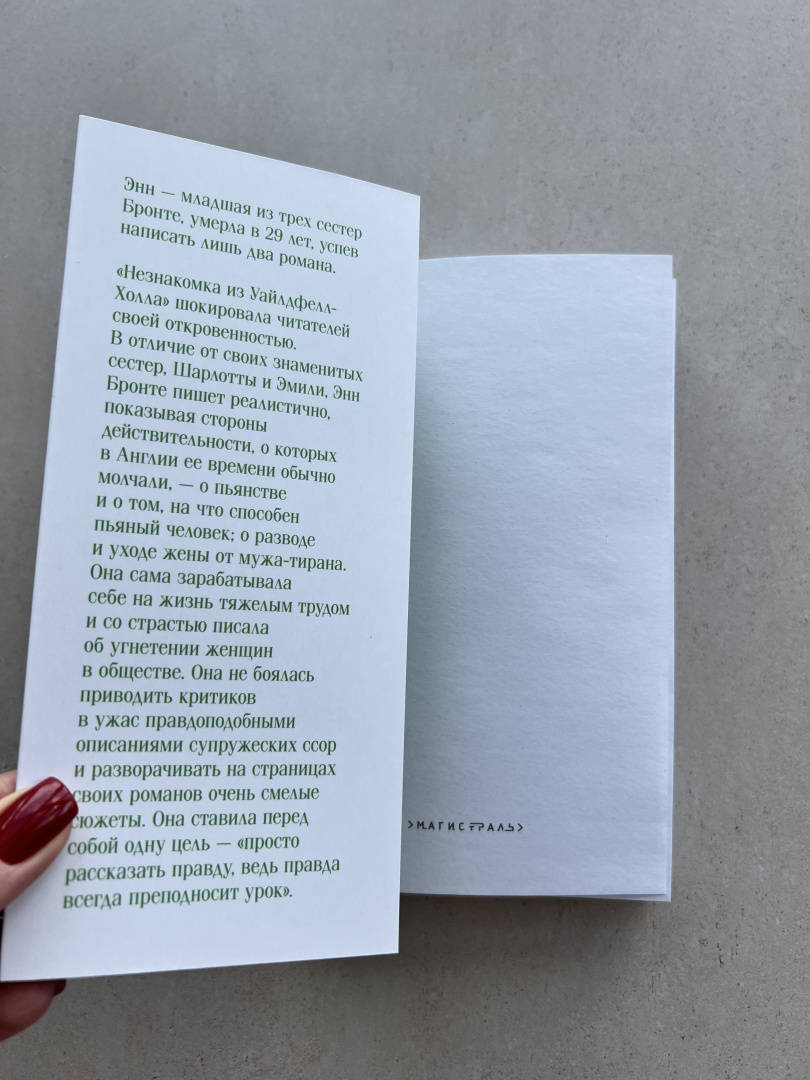 Энн — младшая из трех сестер
Бронте, умерла в 29 лет, успев
написать лишь два романа.
«Незнакомка из Уайлдфелл-
Холла» шокировала читателей
своей откровенностью.
В отличие от своих знаменитых
сестер, Шарлотты и Эмили, Энн
Бронте пишет реалистично,
показывая стороны
действительности, о которых
в Англии ее времени обычно
молчали, — о пьянстве
и о том, на что способен
пьяный человек; о разводе
и уходе жены от мужа-тирана.
Она сама зарабатывала
себе на жизнь тяжелым трудом
и со страстью писала
об угнетении женщин
в обществе. Она не боялась
приводить критиков
в ужас правдоподобными
описаниями супружеских ссор
и разворачивать на страницах
своих романов очень смелые
сюжеты. Она ставила перед
собой одну цель — «просто
рассказать правду, ведь правда
всегда преподносит урок».
>МАГИСТРАЛЬ>